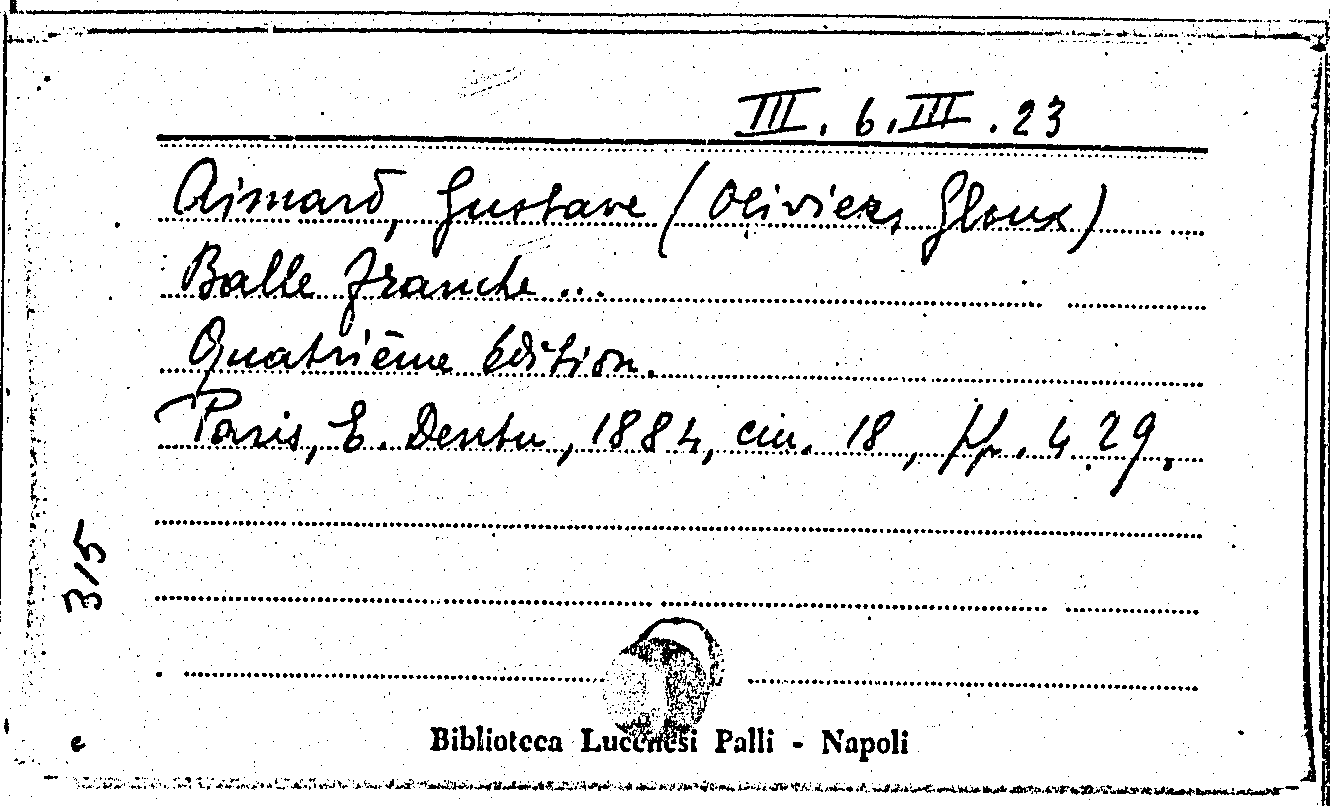 III. 6. III. 23
Aimard, Gustave (Oliviers Gloux)
Balle franche...
Quatrième édition.
Paris, E. Dentu, 1884, cm. 18, pp. 429.
315
Biblioteca Lucchesi Palli - Napoli